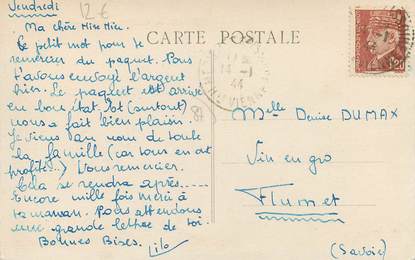 Vendredi
12 €
Ma chère Mimi
Le petit mot pour te
remercier du paquet. Papa
t'avait envoyé l'argent
hier. Le paquet est arrivé
en bon état. Tot (surtout)
nous a fait bien plaisir.
Je viens au nom de toute
la famille (car tous en ont
profité...) Vous remercier.
Cela se rendra après......
Encore mille fois merci à
ta maman. Nous attendons
une grande lettre de toi.
Bonnes Bises. Lilo
CARTE POSTALE
1F20
Melle Denise DUMAX
Vin en gro
Flumet
(Savoie)